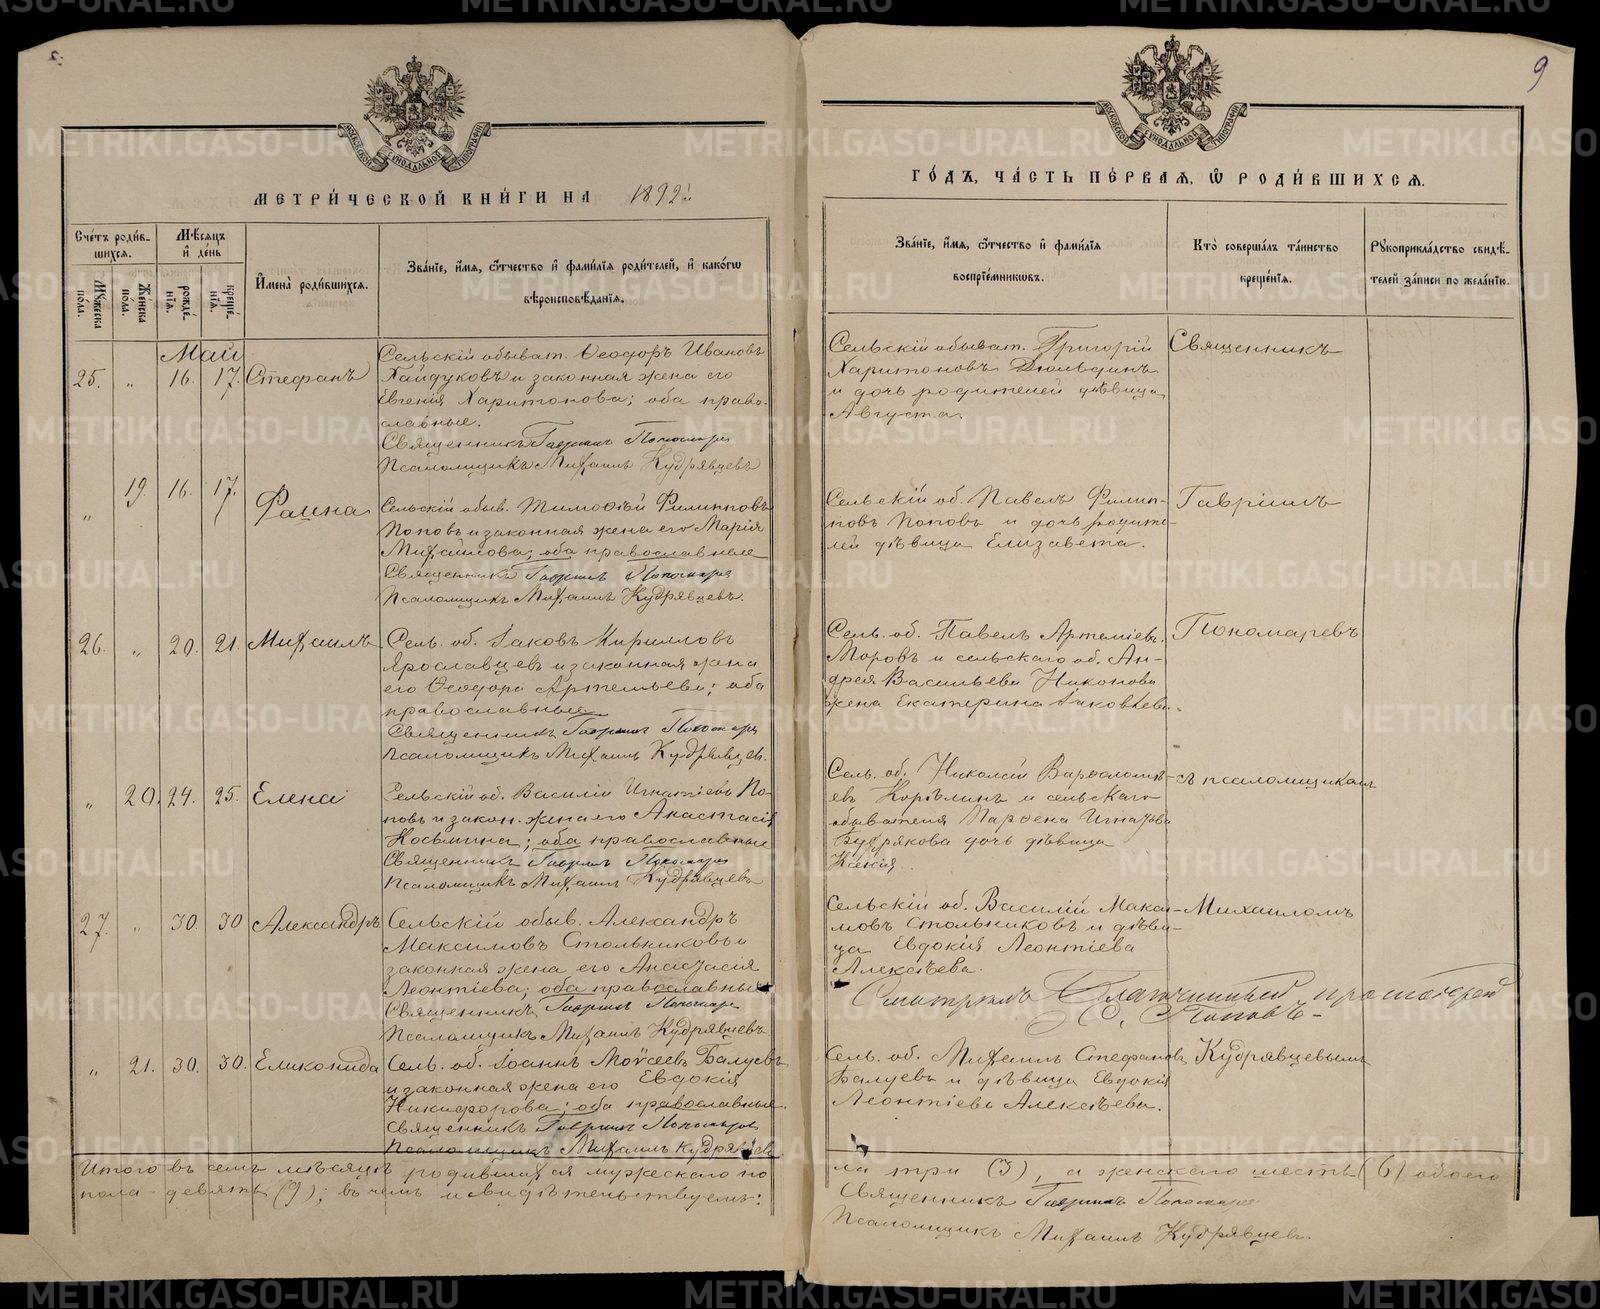 9
МЕТРИ́ЧЕСКОЙ КНИ́ГИ НА 1892й
ГО́ДЪ, ЧА́СТЬ ПЕ́РВАЯ, Ѡ РОДИ́ВШИХСѦ.
Сче́тъ роди́в-
шихся.
Мѣ́сѧцъ
и́ де́нь
Мꙋ́жеска
по́ла.
Же́нска
по́ла.
рожде́-
нїѧ.
креще́-
нїѧ.
И҆мена̀ роди́вшихсѧ.
Зва́нїе, и҆́мѧ, ѻ҆́тчество и҆ фами́лїѧ роди́телей, и҆ како́гѡ
вѣроисповѣ́данїѧ.
Зва́нїе, и҆́мѧ, ѻ҆́тчество и҆ фами́лїѧ
воспрїе́мникѡвъ.
Кто̀ соверша́лъ та́инство
креще́нїѧ.
Рꙋкоприкла́дство свидѣ́-
телей за́писи по жела́нїю.
Май
25. " 16. 17. Стефанъ
Сельскій обыват. Ѳеодоръ Ивановъ
Гайдуковъ и законная жена его
Евгенія Харитонова; оба право-
славные.
Священникъ Гавріилъ Пономаревъ
Псаломщикъ Михаилъ Кудрявцевъ
Сельскій обыват. Григорій
Харитоновъ Дюльдинъ
и дочь родителей дѣвица
Августа.
Священникъ
" 19. 16. 17. Фаина
Сельскій обыв. Тимоѳей Филипповъ
Поповъ и законная жена его Марія
Михаилова; оба православные
Священникъ Гавріилъ Пономаревъ
Псаломщикъ Михаилъ Кудрявцевъ.
Сельскій об. Павелъ Филип-
повъ Поповъ и дочь родите-
лей дѣвица Елизавета.
Гавріилъ
26. " 20. 21. Михаилъ
Сель. об. Іаковъ Кирилловъ
Ярославцевъ и законная жена
его Ѳеодора Артемьева; оба
православные
Священникъ Гавріилъ Пономаревъ
Псаломщикъ Михаилъ Кудрявцевъ.
Сель. об. Павелъ Артеміевъ
Моровъ и сельскаго об. Ан-
дрея Васильева Никонова
жена Екатерина Іаковлева.
Пономаревъ
" 20. 24. 25. Елена
Сельскій об. Василій Игнатіевъ По-
повъ и закон. жена его Анастасія
Косьмина; оба православные
Священникъ Гавріилъ Пономаревъ
Псаломщикъ Михаилъ Кудрявцевъ
Сель. об. Николай Варѳоломе-
евъ Корѣлинъ и сельскаго
обывателя Парѳена Игнатова
Бударякова дочь дѣвица
Ксенія.
съ псаломщикомъ
27. " 30. 30 Александръ
Сельскій обыв. Александръ
Максимовъ Стольниковъ и
законная жена его Анастасія
Леонтіева; оба православные
Священникъ Гавріилъ Пономаревъ
Псаломщикъ Михаилъ Кудрявцевъ
Сельскій об. Василій Макси-
мовъ Стольниковъ и дѣви-
ца Евдокія Леонтіева
Алексѣева.
Михаиломъ
Смотрѣлъ Благочинный протоіерей
Поповъ
" 21. 30. 30. Еликонида
Сель. об. Іоаннъ Моѵсеевъ Балуевъ
и законная жена его Евдокія
Никифорова; оба православные.
Священникъ Гавріилъ Пономаревъ
Псаломщикъ Михаилъ Кудрявцевъ
Сель. об. Михаилъ Стефановъ
Балуевъ и дѣвица Евдокія
Леонтіевъ Алексѣева.
Кудрявцевымъ
Итого въ семъ мѣсяцѣ родившихся мужескаго по
ла три (3), а женскаго шесть (6) обоего
пола девять (9); въ чемъ и свидѣтельствуемъ:
Священникъ Гавріилъ Пономаревъ
Псаломщикъ Михаилъ Кудрявцевъ.
METRIKI.GASO-URAL.RU